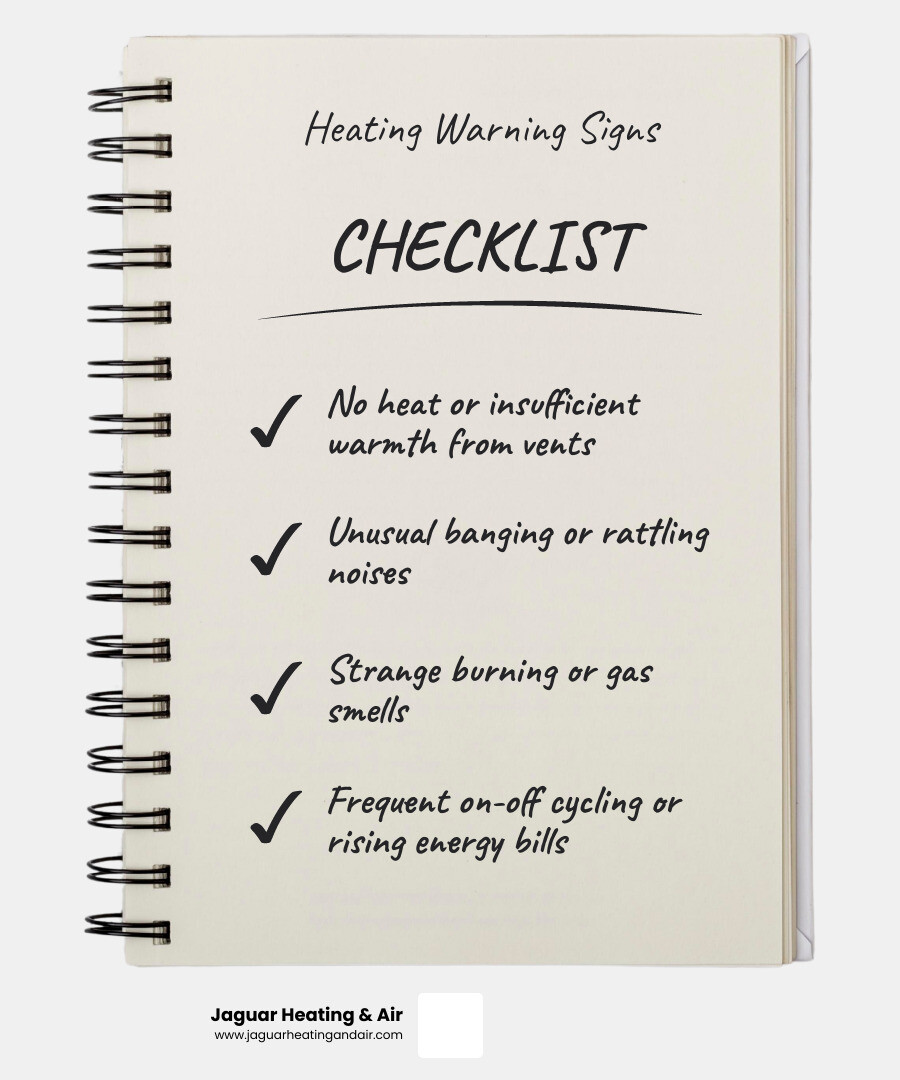 Heating Warning Signs
CHECKLIST
No heat or insufficient
warmth from vents
Unusual banging or rattling
noises
Strange burning or gas
smells
Frequent on-off cycling or
rising energy bills
Jaguar Heating & Air
www.jaguarheatingandair.com